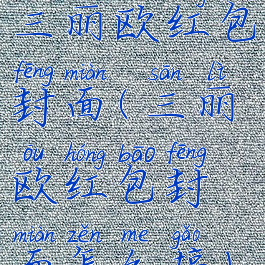 三丽欧红包
fēng miàn sān lì
封面(三丽
ōu hóng bāo fēng
欧红包封
miàn zěn me gǎo
面怎么搞)